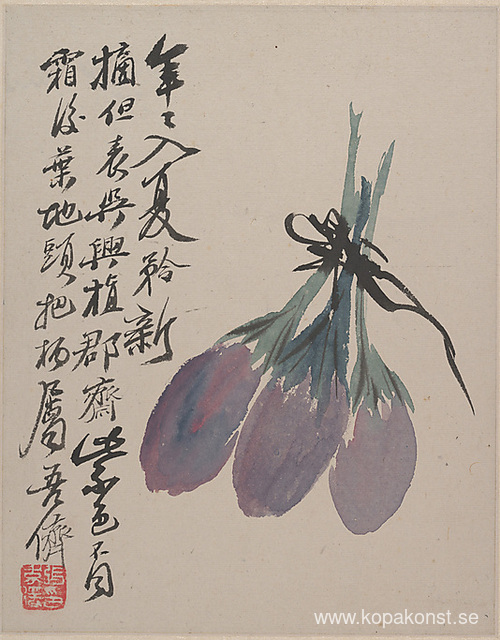 年〻入夏矜新
摘但表與興植郡齋紫色不
霜後葉地頭把柄屬吾儕
www.kopakonst.se